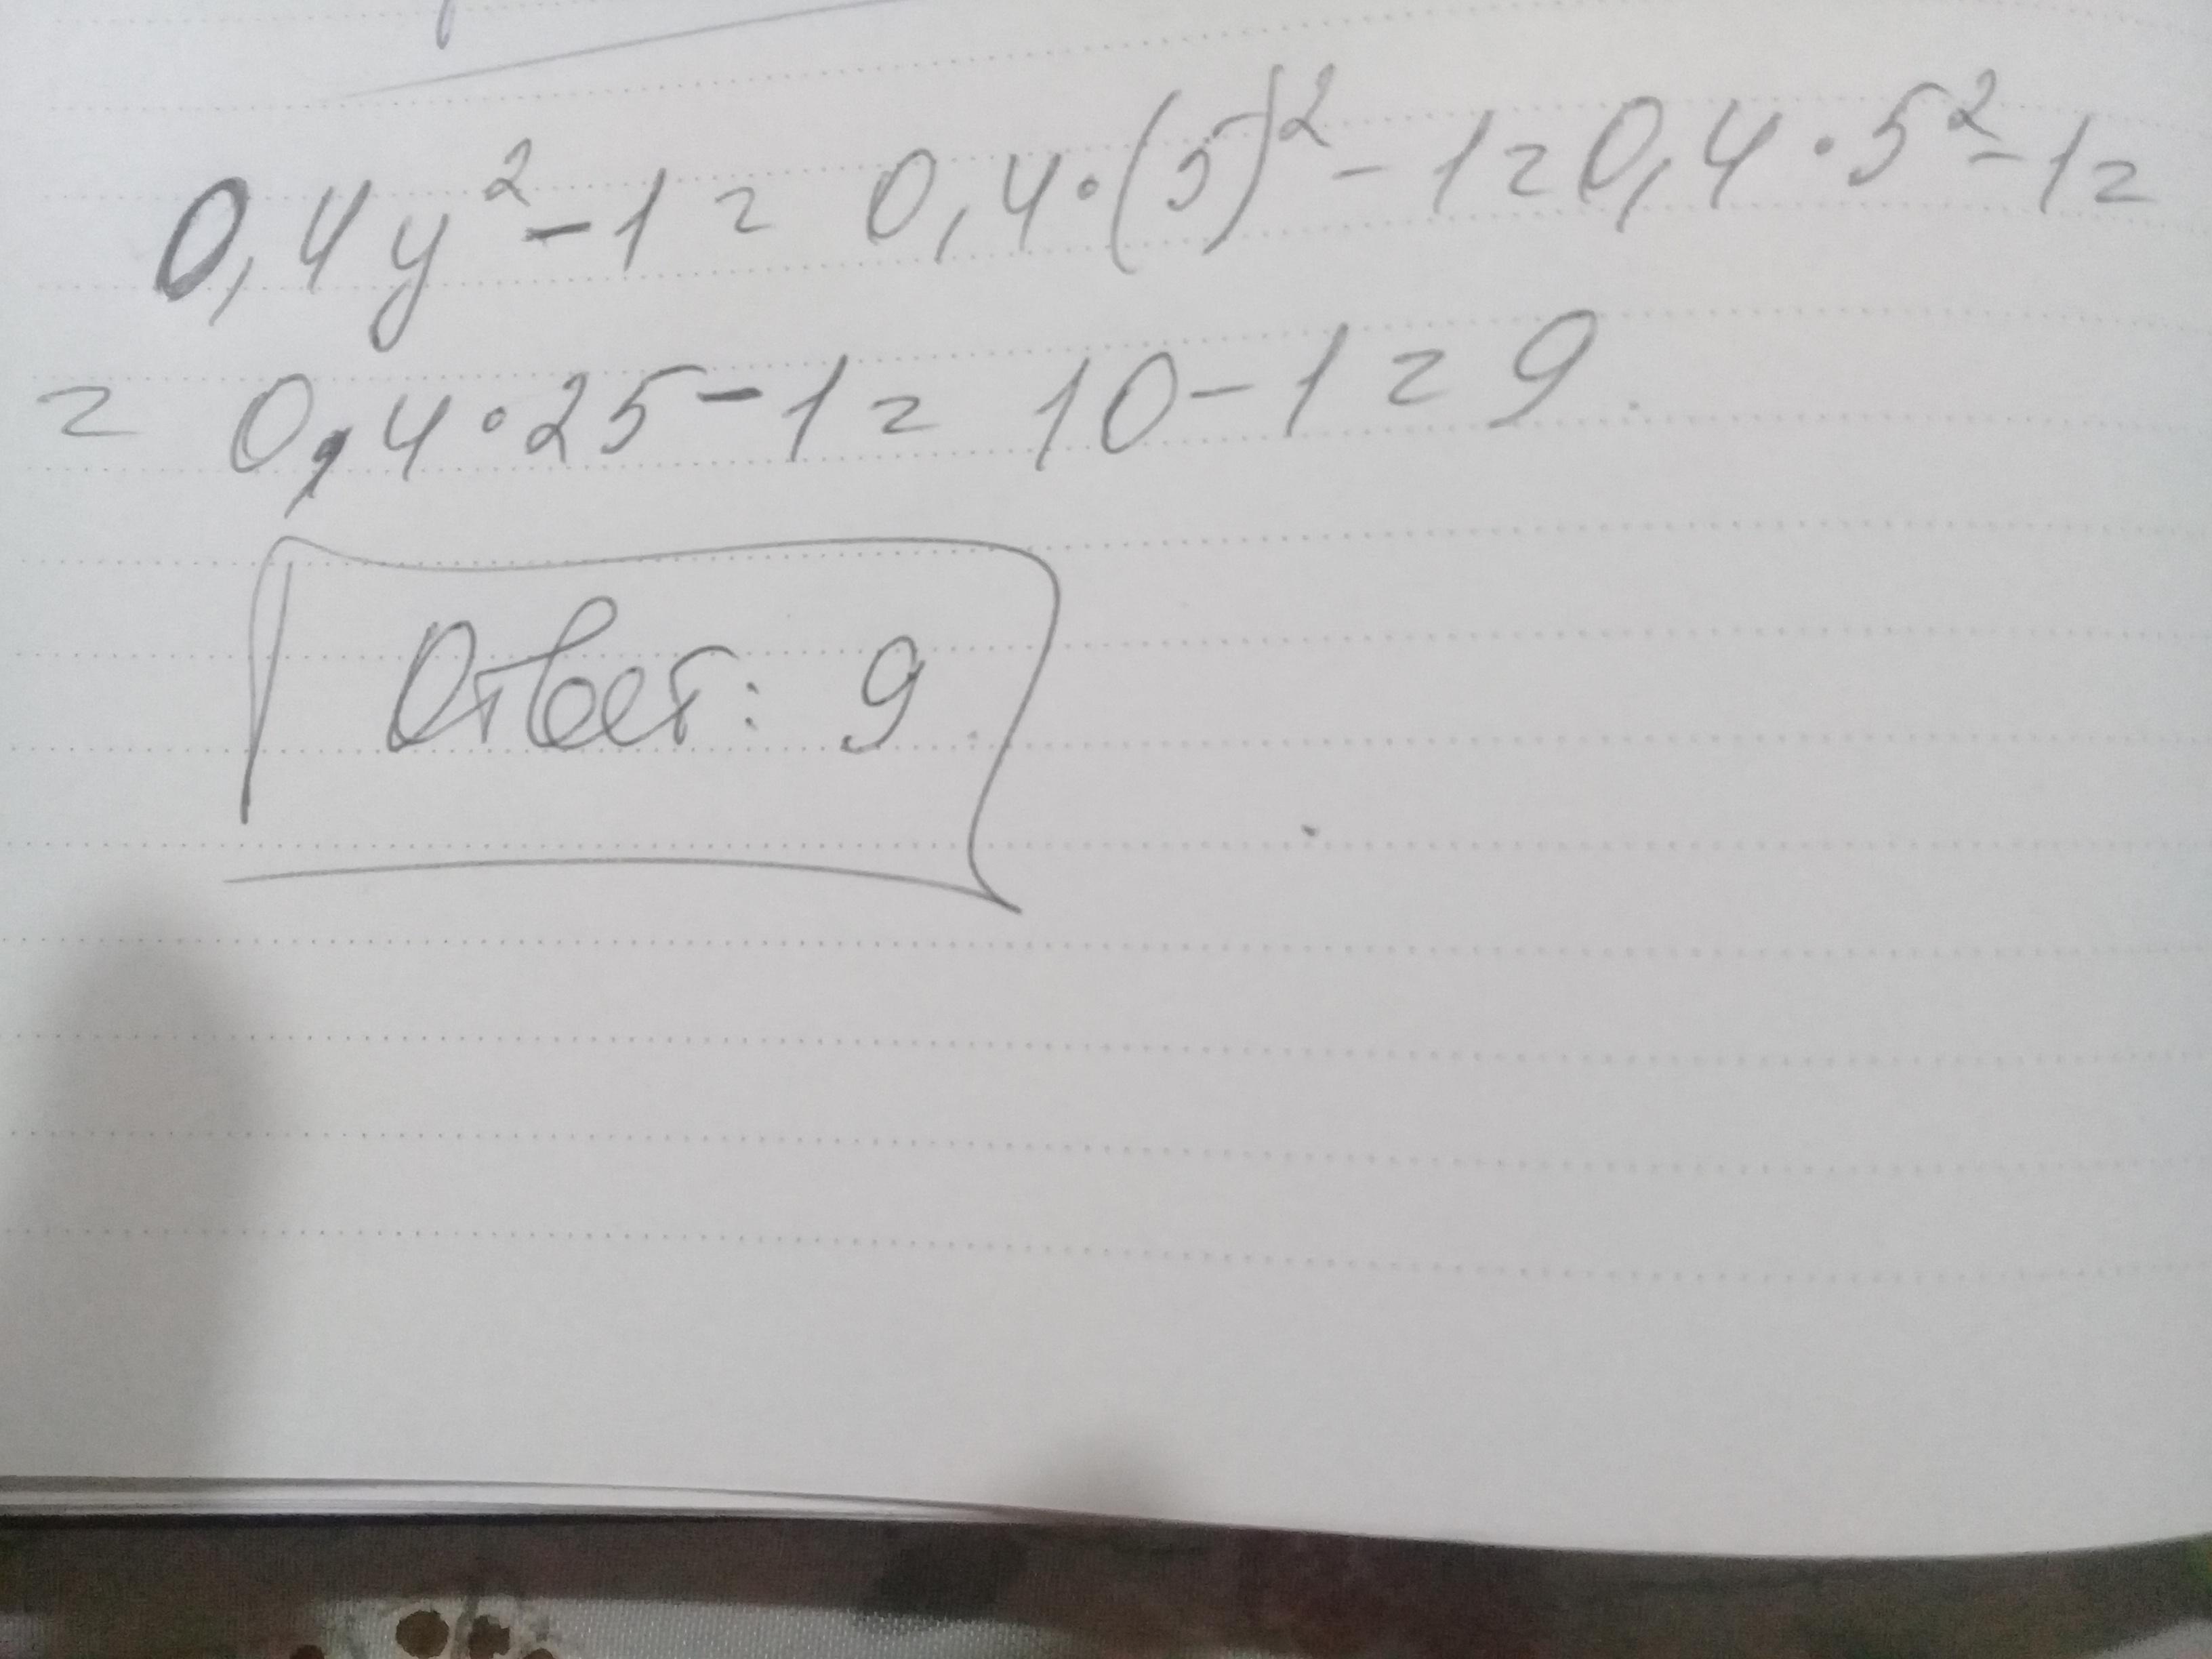 0,4y²-1= 0,4·(5)²-1=0,4·5²-1=
= 0,4·25-1= 10-1=9.
Ответ: 9.